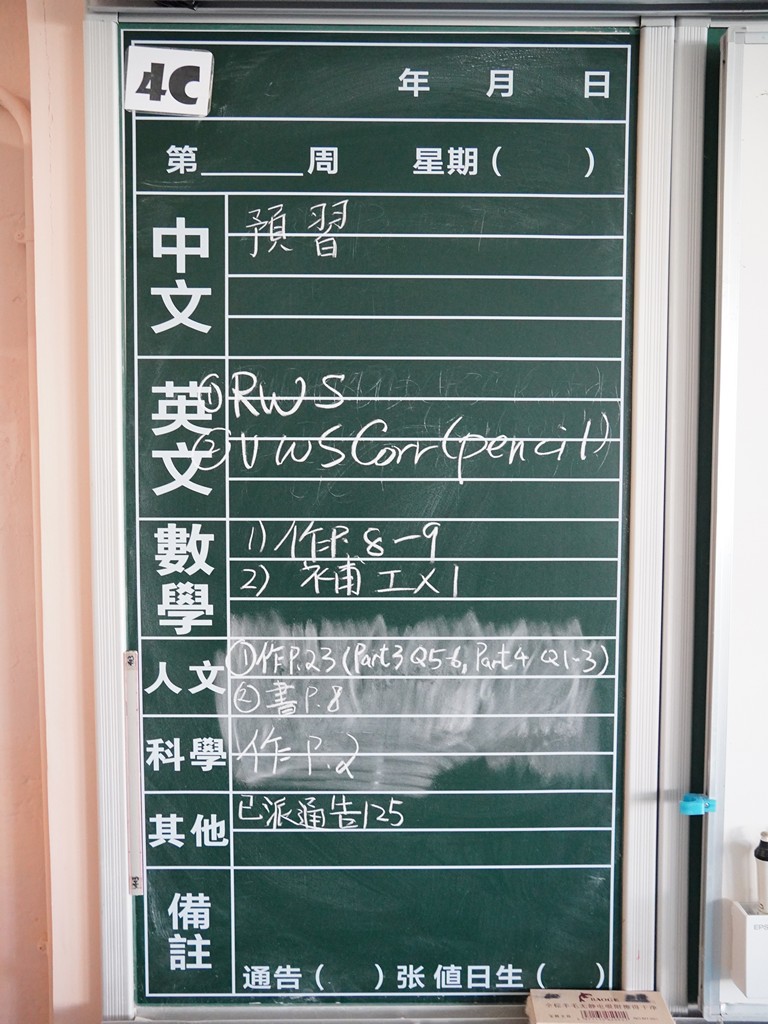 4C
年 月 日
第______周 星期( )
中文 預習
英文 ①RWS
②VWS Corr(pencil)
數學 1) 作P. 8-9
2) 補工×1
人文 ①作P.23 (Part3 Q5-6, Part4 Q1-3)
②書P.8
科學 作P.2
其他 已派通告125
備註
通告( )张 値日生( )